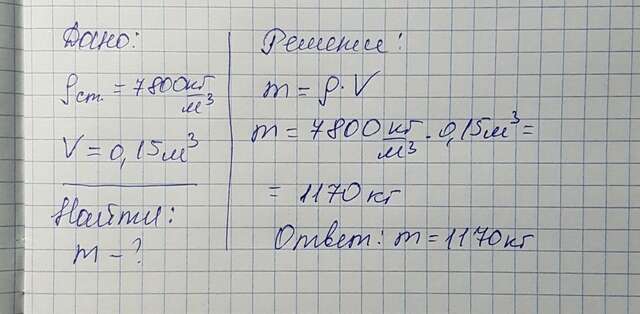 Дано:
ρст. = 7800 кг/м³
V = 0,15 м³
Найти:
m – ?
Решение:
m = ρ · V
m = 7800 кг/м³ · 0,15 м³ =
= 1170 кг
Ответ: m = 1170 кг